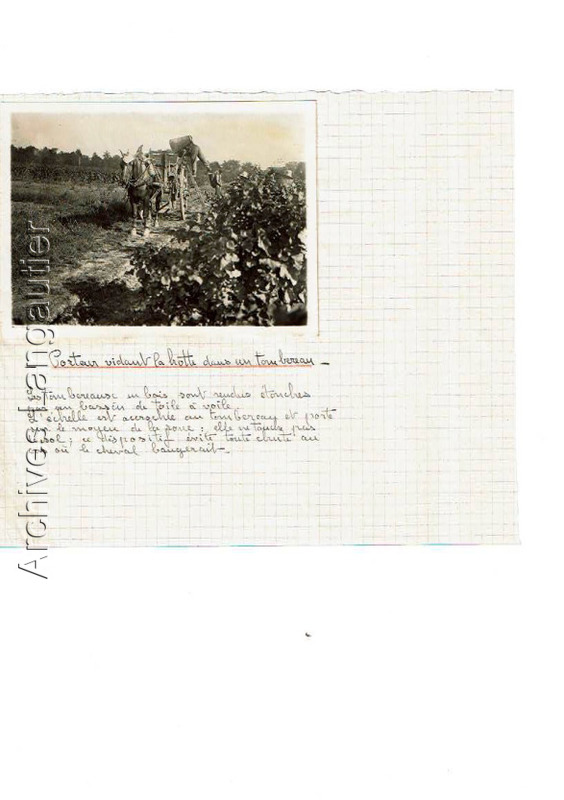 Porteur vidant la hotte dans un tombereau
Les tombereaux en bois sont rendus étanches
par un bassin de toile à voile
L'échelle est accrochée au tombereau et porte
sur le moyeu de la roue ; elle ne touche pas
le sol ; ce dispositif évite toute chute au
cas où le cheval bougerait
Archives Langautier